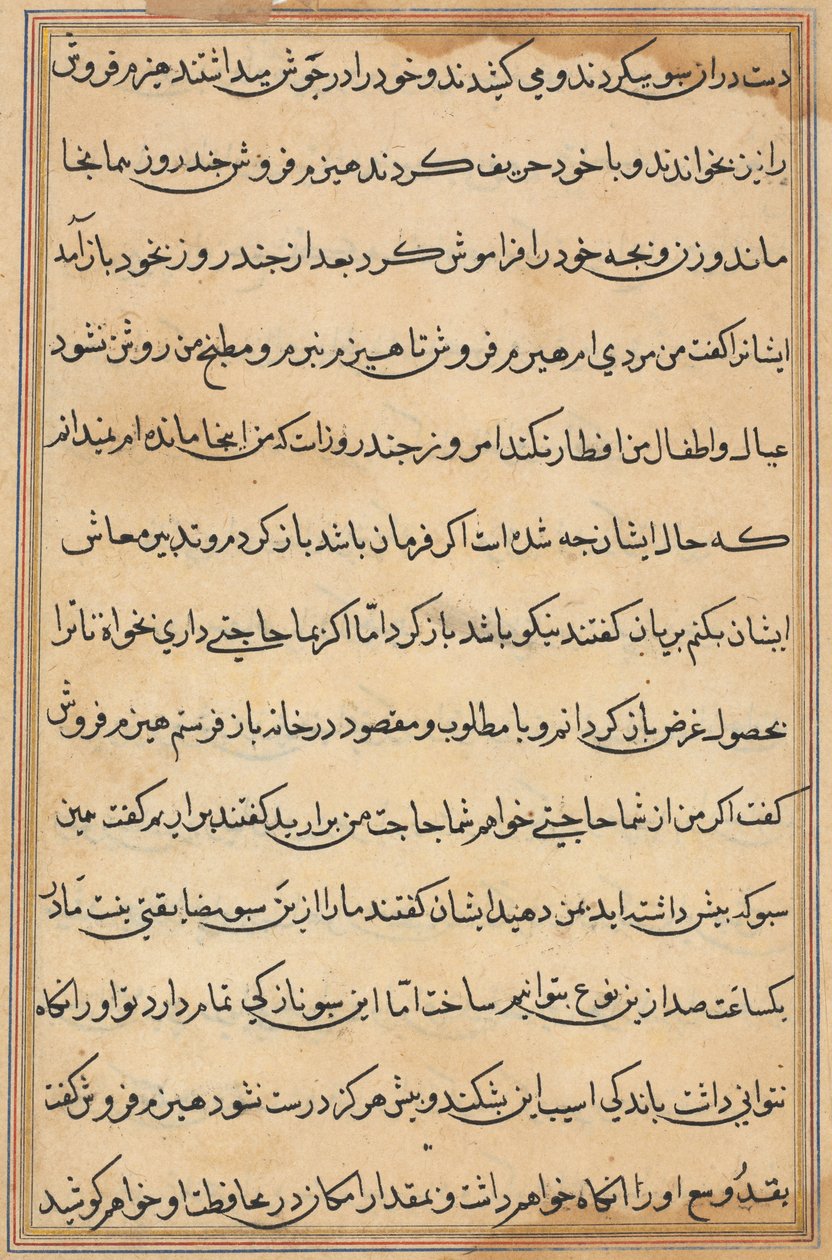 دست در ان سبو میکردند و می کشیدند و خود را در جوش میداشتند هیزم فروش
را نیز بخواندند و با خود حریف کردند هیزم فروش جند روز همانجا
ماند و زن و بجه خود را فراموش کرد بعد از جند روز بخود باز آمد
ایشانرا کفت من مردی ام هیزم فروش تا هیزم نبرم و مطبخ من روشن نشود
عیال و اطفال من افطار نکنند امروز جند روز است که من اینجا مانده ام نمیدانم
که حال ایشان جه شده است اکر فرمان باشد باز کردم و تدبیر معاش
ایشان بکنم پریان کفتند نیکو باشد باز کرد امّا اکر بما حاجتی داری بخواه تا ترا
بحصول غرض باز کردانم و با مطلوب و مقصود در خانه باز فرستم هیزم فروش
کفت اکر من از شما حاجتی خواهم شما حاجت من برارید کفتند براریم کفت همین
سبو که بیش داشته اید بمن دهید ایشان کفتند ما را ازین سبو مضایقتی نیست ما در
یکساعت صد ازین نوع بتوانیم ساخت امّا این سبو نازکی تمام دارد تو او را نکاه
نتوانی داشت باندکی اسیب این بشکند و بیش هرکز درست نشود هیزم فروش کفت
بقدر وسع او را نکاه خواهم داشت و بمقدار امکان در محافظت او خواهم کوشید